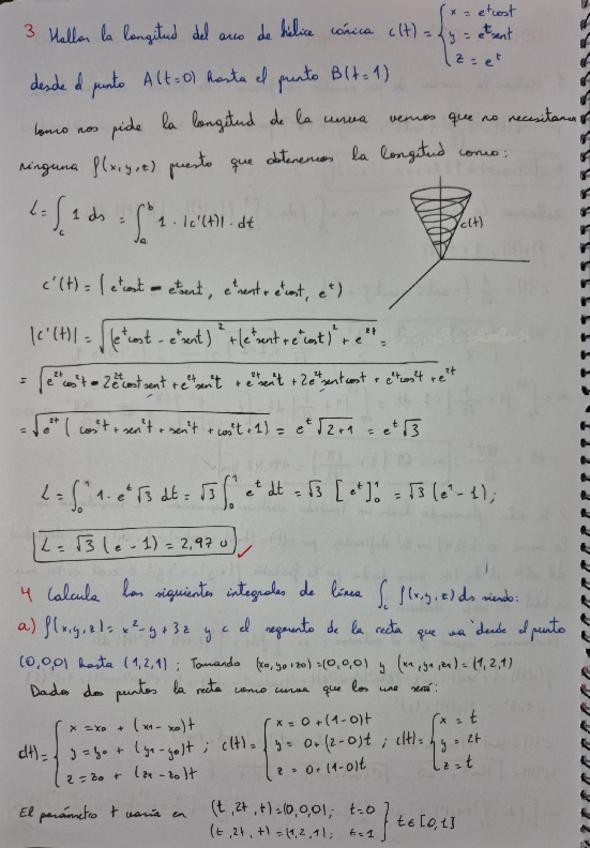 3 Hallar la longitud del arco de hélice cónica c(t) = { x = e^t cost
y = e^t sent
z = e^t
desde el punto A(t=0) hasta el punto B(t=1)
Como nos pide la longitud de la curva vemos que no necesitamos
ninguna f(x,y,z) puesto que obtenemos la longitud como:
L = ∫_c 1 ds = ∫_a^b 1 · |c'(t)| · dt
c(t)
c'(t) = (e^t cost - e^t sent, e^t sent + e^t cost, e^t)
|c'(t)| = √((e^t cost - e^t sent)^2 + (e^t sent + e^t cost)^2 + e^2t) =
= √(e^2t cos^2t - 2e^2t cost sent + e^2t sen^2t + e^2t sen^2t + 2e^2t sent cost + e^2t cos^2t + e^2t)
= √(e^2t (cos^2t + sen^2t + sen^2t + cos^2t + 1)) = e^t √(2+1) = e^t √3
L = ∫_0^1 1 · e^t √3 dt = √3 ∫_0^1 e^t dt = √3 [e^t]_0^1 = √3 (e^1 - 1);
L = √3 (e - 1) = 2,97 u ✓
4 Calcula las siguientes integrales de línea ∫_c f(x,y,z) ds siendo:
a) f(x,y,z) = x^2 - y + 3z y c el segmento de la recta que va desde el punto
(0,0,0) hasta (1,2,1); Tomando (x0,y0,z0) = (0,0,0) y (x1,y1,z1) = (1,2,1)
Dados dos puntos la recta como curva que los une será:
c(t) = { x = x0 + (x1 - x0)t ; c(t) = { x = 0 + (1-0)t ; c(t) = { x = t
y = y0 + (y1 - y0)t y = 0 + (2-0)t y = 2t
z = z0 + (z1 - z0)t z = 0 + (1-0)t z = t
El parámetro t varía en (t, 2t, t) = (0,0,0); t=0 } t ∈ [0,1]
(t, 2t, t) = (1,2,1); t=1